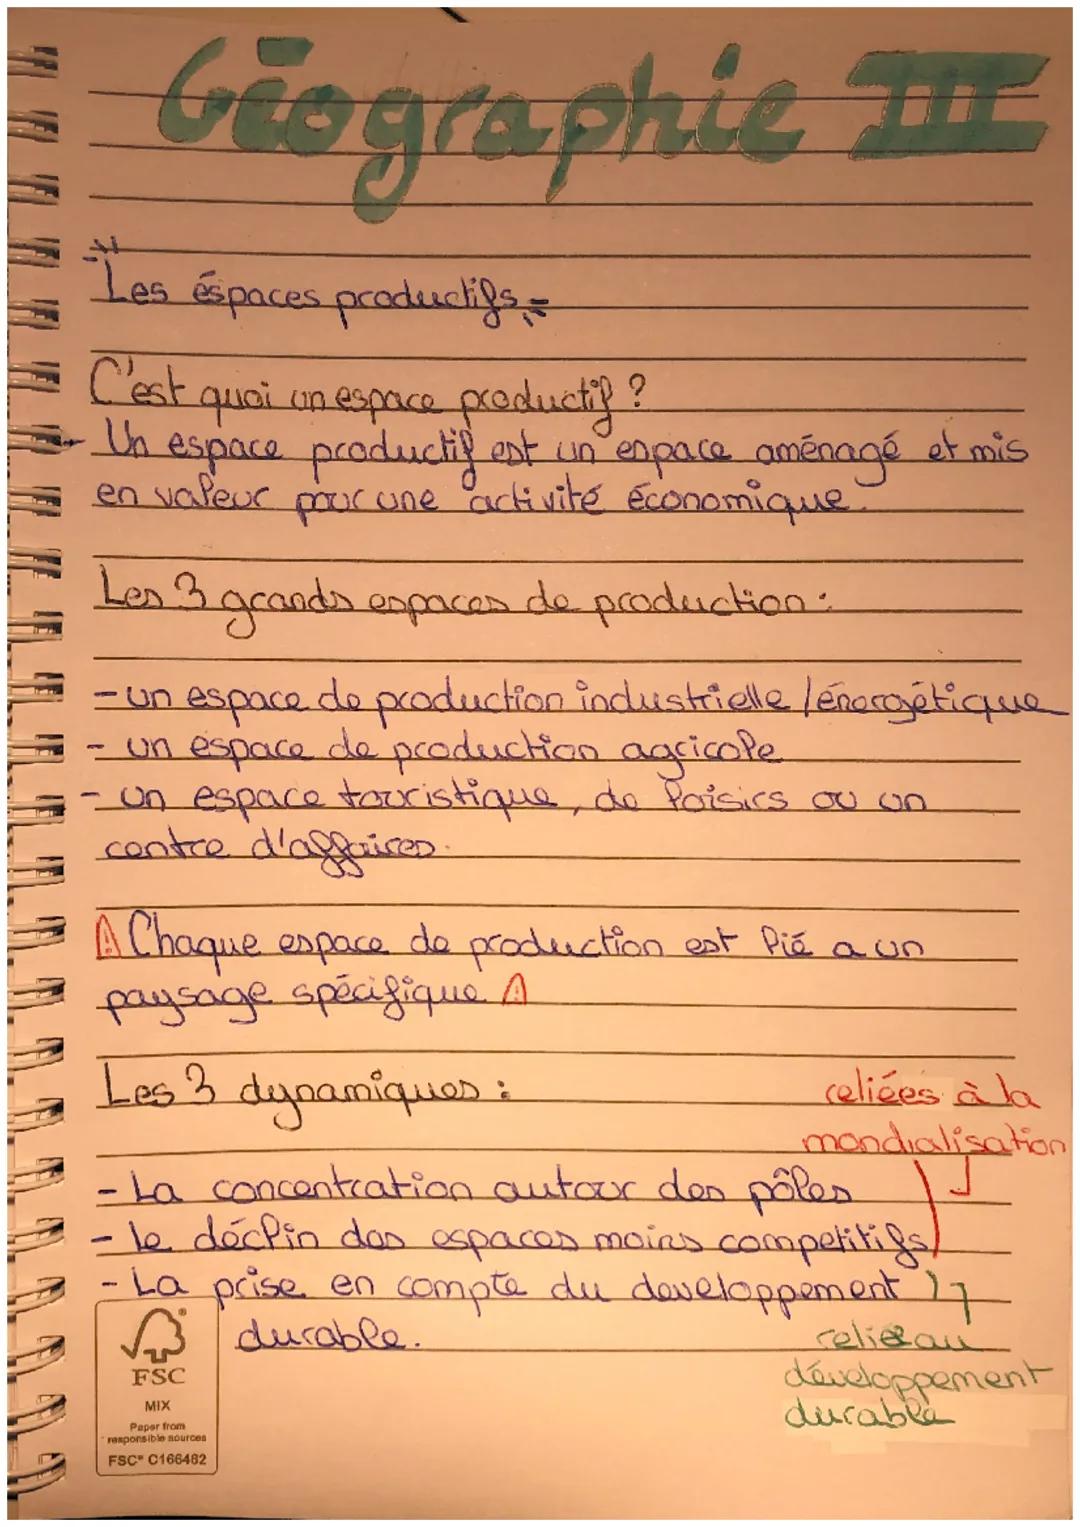 Géographie III
Les éspaces productifs
C'est quoi un espace productif ?
Un espace productif est un espace aménagé et mis
en valeur pour une activité économique.
Les 3 grands espaces de production :
- un espace de production industrielle / énergétique
- un espace de production agricole
- un espace touristique, de loisirs ou un
centre d'affaires.
Chaque espace de production est lié a un
paysage spécifique
Les 3 dynamiques :
reliées à la
mondialisation
- La concentration autour des pôles
- le déclin des espaces moins competitifs
- La prise en compte du developpement
durable.
relié au
développement
durable
FSC
MIX
Paper from
responsible sources
FSC® C166462